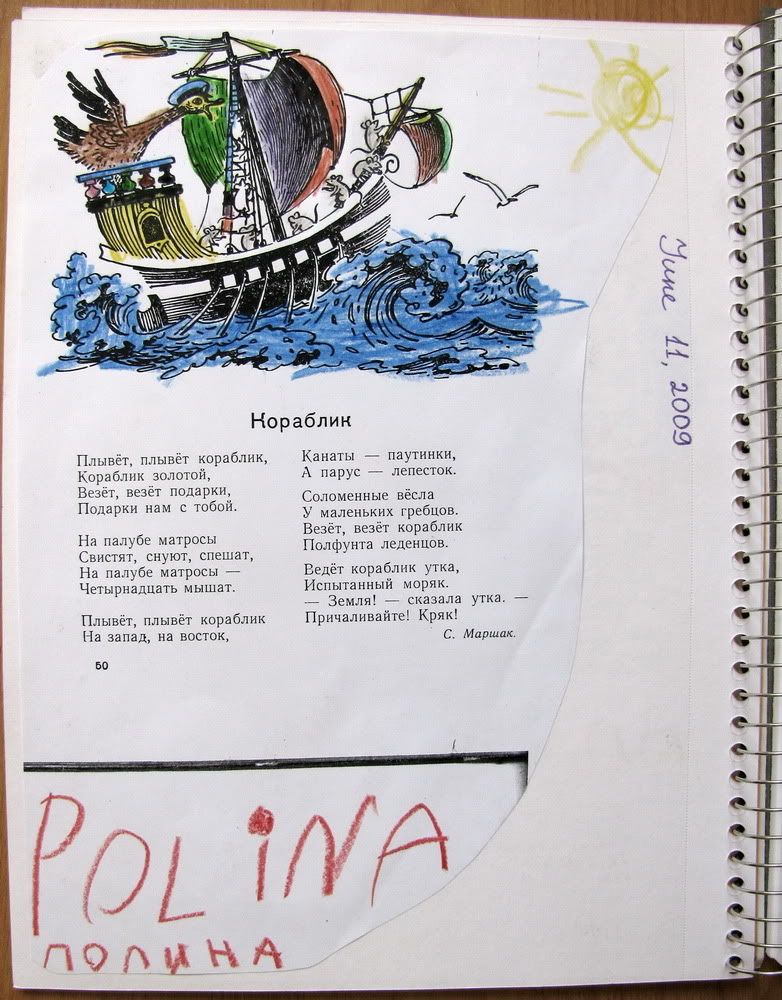 Кораблик
Плывёт, плывёт кораблик,
Кораблик золотой,
Везёт, везёт подарки,
Подарки нам с тобой.
На палубе матросы
Свистят, снуют, спешат,
На палубе матросы —
Четырнадцать мышат.
Плывёт, плывёт кораблик
На запад, на восток,
Канаты — паутинки,
А парус — лепесток.
Соломенные вёсла
У маленьких гребцов.
Везёт, везёт кораблик
Полфунта леденцов.
Ведёт кораблик утка,
Испытанный моряк.
— Земля! — сказала утка. —
Причаливайте! Кряк!
С. Маршак.
50
June 11, 2009
POLiNA
ПОЛИНА